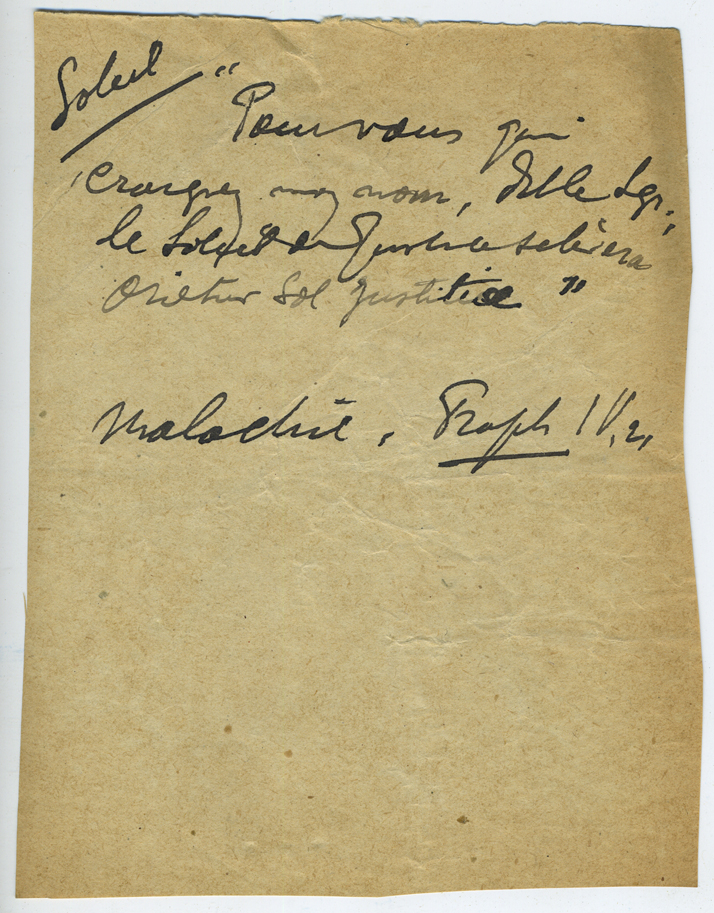 Soleil
"Pour vous qui
craignez mon nom, dit le Sgr.,
le Soleil de Justice se lèvera
Orietur Sol Justitiæ"
Malachie, Proph IV, 2,